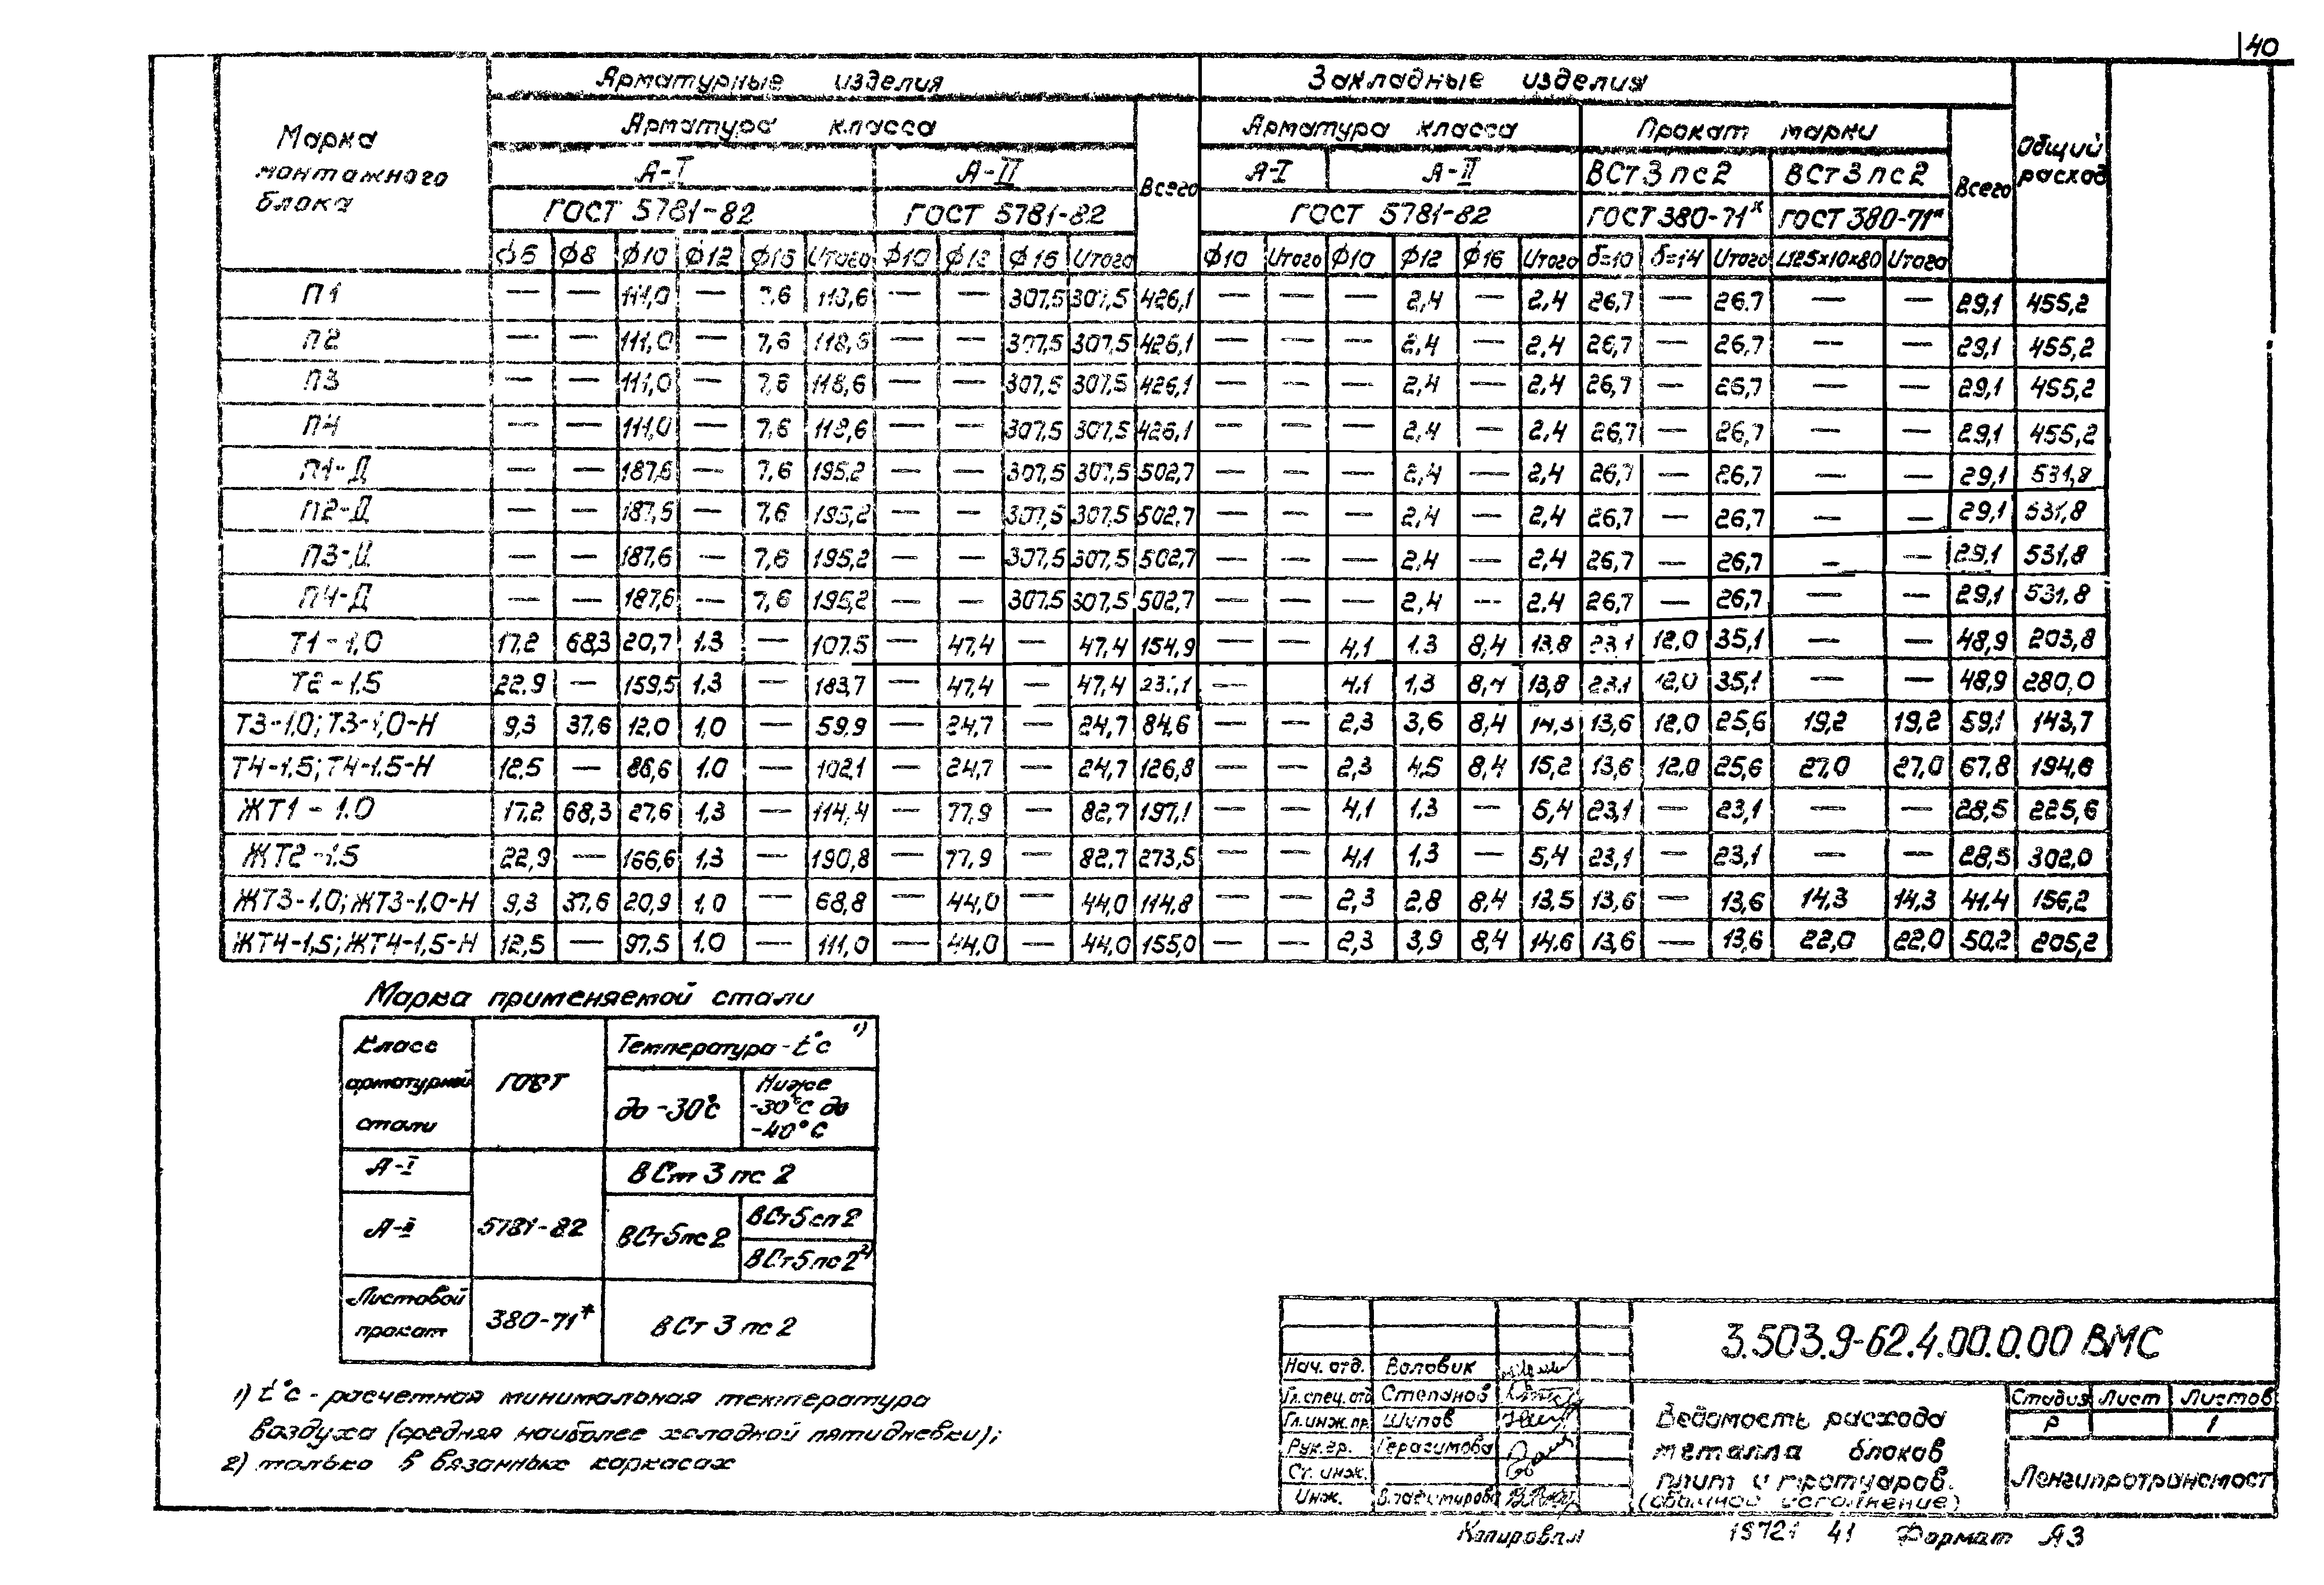 40
Арматурные изделия Закладные изделия
Марка монтажного блока Арматура класса Всего Арматура класса Прокат марки Всего Общий расход
А-I А-II А-I А-II ВСт3пс2 ВСт3пс2
ГОСТ 5781-82 ГОСТ 5781-82 ГОСТ 5781-82 ГОСТ 380-71* ГОСТ 380-71*
ф6 ф8 ф10 ф12 ф16 Итого ф10 ф12 ф16 Итого ф10 Итого ф10 ф12 ф16 Итого δ=10 δ=14 Итого L125x10x80 Итого
П1 — — 111,0 — 7,6 118,6 — — 307,5 307,5 426,1 — — — 2,4 — 2,4 26,7 — 26.7 — — 29,1 455,2
П2 — — 111,0 — 7,6 118,6 — — 307,5 307,5 426,1 — — — 2,4 — 2,4 26,7 — 26,7 — — 29,1 455,2
П3 — — 111,0 — 7,6 118,6 — — 307,5 307,5 426,1 — — — 2,4 — 2,4 26,7 — 26,7 — — 29,1 455,2
П4 — — 111,0 — 7,6 118,6 — — 307,5 307,5 426,1 — — — 2,4 — 2,4 26,7 — 26,7 — — 29,1 455,2
П1-Д — — 187,6 — 7,6 195,2 — — 307,5 307,5 502,7 — — — 2,4 — 2,4 26,7 — 26,7 — — 29,1 531,8
П2-Д — — 187,6 — 7,6 195,2 — — 307,5 307,5 502,7 — — — 2,4 — 2,4 26,7 — 26,7 — — 29,1 531,8
П3-Д — — 187,6 — 7,6 195,2 — — 307,5 307,5 502,7 — — — 2,4 — 2,4 26,7 — 26,7 — — 29,1 531,8
П4-Д — — 187,6 — 7,6 195,2 — — 307.5 307,5 502,7 — — — 2,4 — 2.4 26,7 — 26,7 — — 29,1 531.8
Т1-1,0 17,2 68,3 20,7 1.3 — 107.5 — 47,4 — 47,4 154,9 — — 4,1 1.3 8,4 13,8 23,1 12,0 35,1 — — 48,9 203,8
Т2-1.5 22.9 — 159,5 1,3 — 183,7 — 47,4 — 47,4 231,1 — 4,1 1,3 8,4 13,8 23,1 12,0 35,1 — — 48,9 280,0
Т3-1,0; Т3-1,0-Н 9,3 37,6 12,0 1,0 — 59,9 — 24,7 — 24,7 84,6 — — 2,3 3,6 8,4 14,3 13,6 12.0 25,6 19,2 19,2 59,1 143,7
Т4-1.5; Т4-1.5-Н 12,5 — 88,6 1.0 — 102,1 — 24,7 — 24,7 126,8 — — 2,3 4,5 8,4 15,2 13,6 12,0 25,6 27,0 27,0 67,8 194,6
ЖТ1-1.0 17,2 68,3 27,6 1,3 — 114,4 — 77,9 — 82,7 197,1 — — 4,1 1.3 — 5,4 23,1 — 23,1 — — 28,5 225,6
ЖТ2-1.5 22,9 — 166,6 1,3 — 190,8 — 77,9 — 82.7 273,5 — — 4,1 1,3 — 5,4 23,1 — 23,1 — — 28,5 302,0
ЖТ3-1,0; ЖТ3-1,0-Н 9,3 37,6 20,9 1,0 — 68,8 — 44,0 — 44,0 114,8 — — 2,3 2,8 8,4 13,5 13,6 — 13,6 14,3 14,3 41.4 156,2
ЖТ4-1,5; ЖТ4-1,5-Н 12,5 — 97,5 1.0 — 111,0 — 44,0 — 44,0 155,0 — — 2,3 3,9 8,4 14,6 13,6 — 13,6 22,0 22,0 50,2 205,2
Марка применяемой стали
Класс арматурной стали ГОСТ Температура - t°c ¹⁾
до -30°с Ниже -30°С до -40°С
А-I 5781-82 ВСт 3 пс 2
А-II ВСт5пс2 ВСт5сп2
ВСт5пс2²⁾
Листовой прокат 380-71* ВСт 3 пс 2
1) t°c - расчетная минимальная температура
воздуха (средняя наиболее холодной пятидневки);
2) только в вязанных каркасах
3.503.9-62.4.00.0.00 ВМС
Нач. отд. Воловик
Гл.спец.отд Степанов
Гл.инж.пр. Шипов
Рук.гр. Герасимова
Ст. инж.
Инж. Владимирова
Ведомость расхода
металла блоков
плит и тротуаров.
(обычное исполнение)
Стадия Лист Листов
Р 1
Ленгипротрансмост
Копировал 18721 41 Формат А3